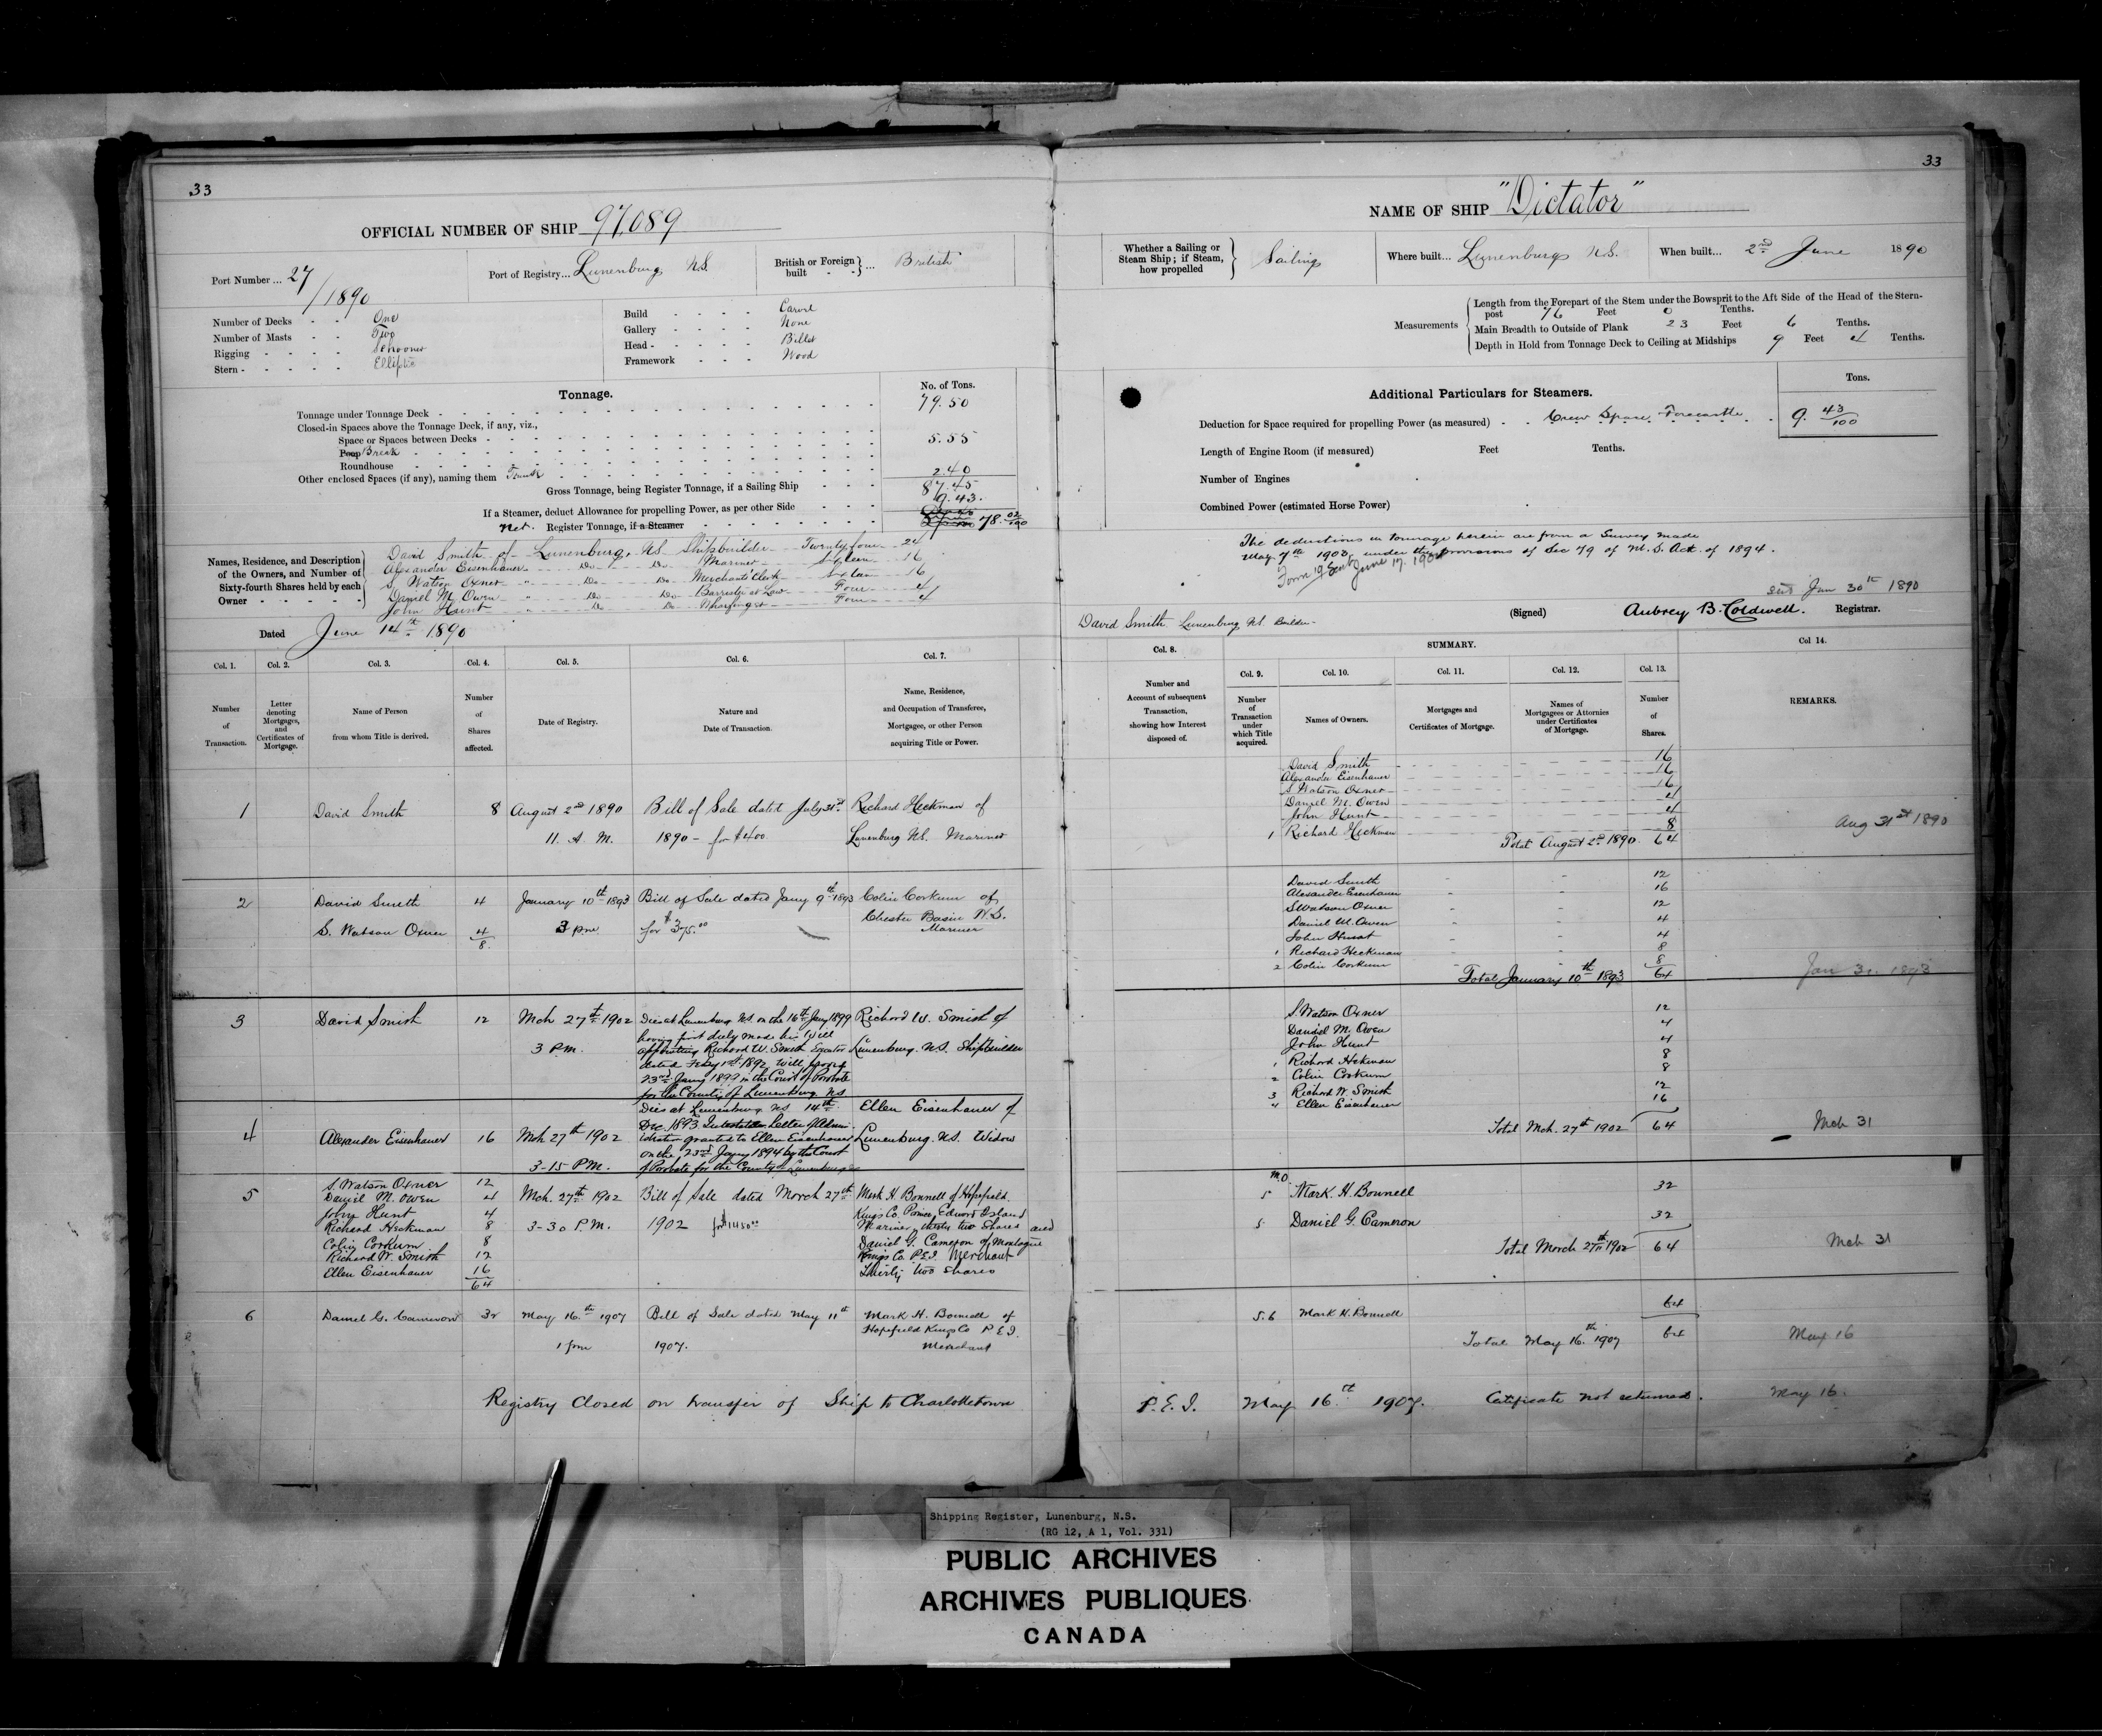 33
OFFICIAL NUMBER OF SHIP 97,089
Port Number ... 27/1890
Port of Registry... Lunenburg N.S.
British or Foreign built - - } ... British
Number of Decks - - One
Number of Masts - - Two
Rigging - - - - Schooner
Stern - - - - - Elliptic
Build - - - - Carvel
Gallery - - - - None
Head - - - - - Billet
Framework - - - Wood
Tonnage.
No. of Tons.
Tonnage under Tonnage Deck - 79.50
Closed-in Spaces above the Tonnage Deck, if any, viz.,
Space or Spaces between Decks -
Poop Break 5.55
Roundhouse
Other enclosed Spaces (if any), naming them Trunk 2.40
Gross Tonnage, being Register Tonnage, if a Sailing Ship 87.45
If a Steamer, deduct Allowance for propelling Power, as per other Side 9.43.
Net. Register Tonnage, if a Steamer 78.02/100
Names, Residence, and Description of the Owners, and Number of Sixty-fourth Shares held by each Owner
David Smith of Lunenburg, NS Shipbuilder Twenty four 24
Alexander Eisenhauer " Do Do Mariner Sixteen 16
S. Watson Oxner " Do Do Merchants Clerk Sixteen 16
Daniel M. Owen " Do Do Barrister at Law Four 4
John Hunt " Do Do Wharfinger Four 4
Dated June 14th 1890
Col. 1. Col. 2. Col. 3. Col. 4. Col. 5. Col. 6. Col. 7.
Number of Transaction.
Letter denoting Mortgages, and Certificates of Mortgage.
Name of Person from whom Title is derived.
Number of Shares affected.
Date of Registry.
Nature and Date of Transaction.
Name, Residence, and Occupation of Transferee, Mortgagee, or other Person acquiring Title or Power.
1 David Smith 8 August 2nd 1890 Bill of Sale dated July 31st Richard Heckman of
11 A. M. 1890 - for $400 Lunenburg NS. Mariner
2 David Smith 4 January 10th 1893 Bill of Sale dated Jany 9th 1893 Colin Corkum of
S. Watson Oxner 4 3 pm for $375.00 Chester Basin N.S.
8 Mariner
3 David Smith 12 Mch 27th 1902 Dies at Lunenburg N.S. on the 16th Jany 1899 Richard W. Smith of
having first duly made his Will
3 P.M. appointing Richard W. Smith Executor Lunenburg. N.S. Shipbuilder
dated Feby 1st 1892 Will proved
23rd Jany 1899 in the Court of Probate
for the County of Lunenburg NS
Dies at Lunenburg NS 14th Ellen Eisenhauer of
4 Alexander Eisenhauer 16 Mch 27th 1902 Dec. 1893 Intestate Letter of Admin-
istration granted to Ellen Eisenhauer Lunenburg. N.S. Widow
on the 23rd Jany 1894 by the Court
3-15 P.M. of Probate for the County of Lunenburg
5 S. Watson Oxner 12
Daniel M. Owen 4 Mch. 27th 1902 Bill of Sale dated March 27th Mark H. Bonnell of Hopefield.
John Hunt 4 Kings Co. Prince Edward Island
Richard Heckman 8 3-30 P.M. 1902 for $1450.00 Mariner, thirty two Shares and
Colin Corkum 8 Daniel G. Cameron of Montague
Richard W. Smith 12 Kings Co. P.E.I. Merchant
Ellen Eisenhauer 16 Thirty two Shares
64
6 Daniel G. Cameron 32 May 16th 1907 Bill of Sale dated May 11th Mark H. Bonnell of
Hopefield Kings Co P E I.
1 pm 1907. Merchant
Registry Closed on transfer of Ship to Charlottetown
33
NAME OF SHIP "Dictator"
Whether a Sailing or Steam Ship; if Steam, how propelled } Sailing
Where built... Lunenburg N.S.
When built... 2nd June 1890
Measurements
Length from the Forepart of the Stem under the Bowsprit to the Aft Side of the Head of the Stern-
post 76 Feet 0 Tenths.
Main Breadth to Outside of Plank 23 Feet 6 Tenths.
Depth in Hold from Tonnage Deck to Ceiling at Midships 9 Feet 4 Tenths.
Additional Particulars for Steamers.
Tons.
Deduction for Space required for propelling Power (as measured) - - Crew Space, Forecastle 9. 43/100
Length of Engine Room (if measured) Feet Tenths.
Number of Engines
Combined Power (estimated Horse Power)
The deductions in tonnage herein are from a Survey made
May 7th 1902, under the provisions of Sec 79 of M. S. Act. of 1894.
Form 19 Sent June 17. 190
Jan 30th 1890
David Smith Lunenburg NS. Builder
(Signed) Aubrey B. Coldwell. Registrar.
SUMMARY.
Col. 8. Col. 9. Col. 10. Col. 11. Col. 12. Col. 13. Col 14.
Number and Account of subsequent Transaction, showing how Interest disposed of.
Number of Transaction under which Title acquired.
Names of Owners.
Mortgages and Certificates of Mortgage.
Names of Mortgagees or Attornies under Certificates of Mortgage.
Number of Shares.
REMARKS.
David Smith 16
Alexander Eisenhauer 16
S Watson Oxner 16
Daniel M. Owen 4
John Hunt 4
1 Richard Heckman 8
Total August 2nd 1890 64
Aug 31st 1890
David Smith 12
Alexander Eisenhauer 16
S Watson Oxner 12
Daniel M. Owen 4
John Hunt 4
1 Richard Heckman 8
2 Colin Corkum 8
Total January 10th 1893 64
Jan 31. 1893
S. Watson Oxner 12
Daniel M. Owen 4
John Hunt 4
1 Richard Heckman 8
2 Colin Corkum 8
3 Richard W. Smith 12
4 Ellen Eisenhauer 16
Total Mch. 27th 1902 64
Mch 31
M.O
5 Mark. H. Bonnell 32
5 Daniel G. Cameron 32
Total March 27th 1902 64
Mch 31
5.6 Mark H. Bonnell 64
Total May 16th 1907 64
May 16
P.E.I. May 16th 1907. Certificate not returned. May 16.
Shipping Register, Lunenburg, N.S.
(RG 12, A 1, Vol. 331)
PUBLIC ARCHIVES
ARCHIVES PUBLIQUES
CANADA